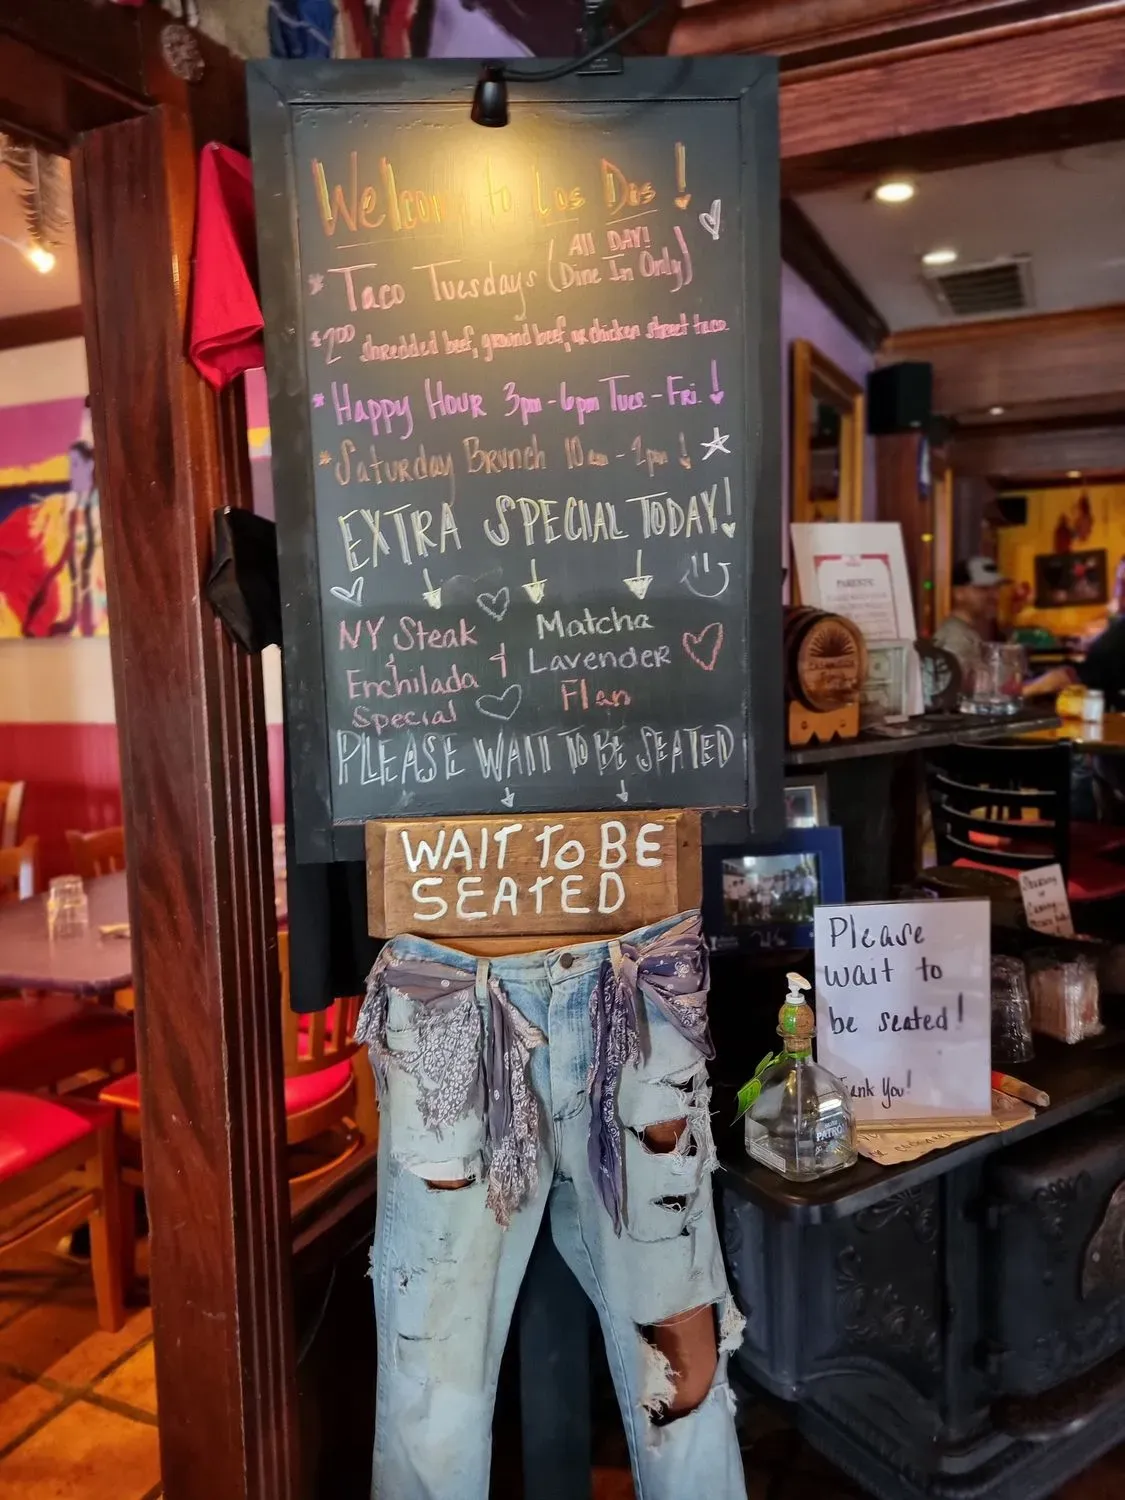 Welcome to Los Dos!
* Taco Tuesdays (All DAY! Dine In Only)
$2.00 shredded beef, ground beef, or chicken street taco
* HAPPY HOUR 3pm - 6pm Tues. - Fri!
* Saturday Brunch 10am - 2pm!
EXTRA SPECIAL TODAY!
NY Steak & Enchilada Special + Matcha Lavender Flan
PLEASE WAIT TO BE SEATED
WAIT TO BE
SEATED
Please
wait to
be seated!
Thank You!
PATRÓN
PARENTS: